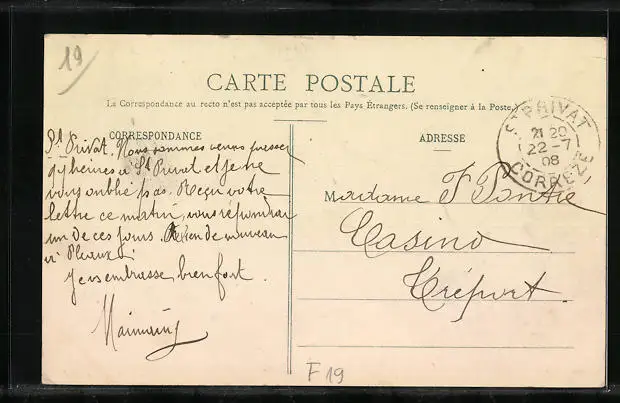 19
CARTE POSTALE
La Correspondance au recto n'est pas acceptée par tous les Pays Étrangers. (Se renseigner à la Poste.)
CORRESPONDANCE
St Privat. Nous sommes venus passer
heures à St Privat et je ne
vous oublie pas. Reçu votre
lettre ce matin, vous répondrai
un de ces jours. Rien de nouveau
à
Je vs embrasse bien fort.
ADRESSE
Madame F
Casino
Tréport.
ST PRIVAT
21 20
22-7
08
CORREZE
F 19